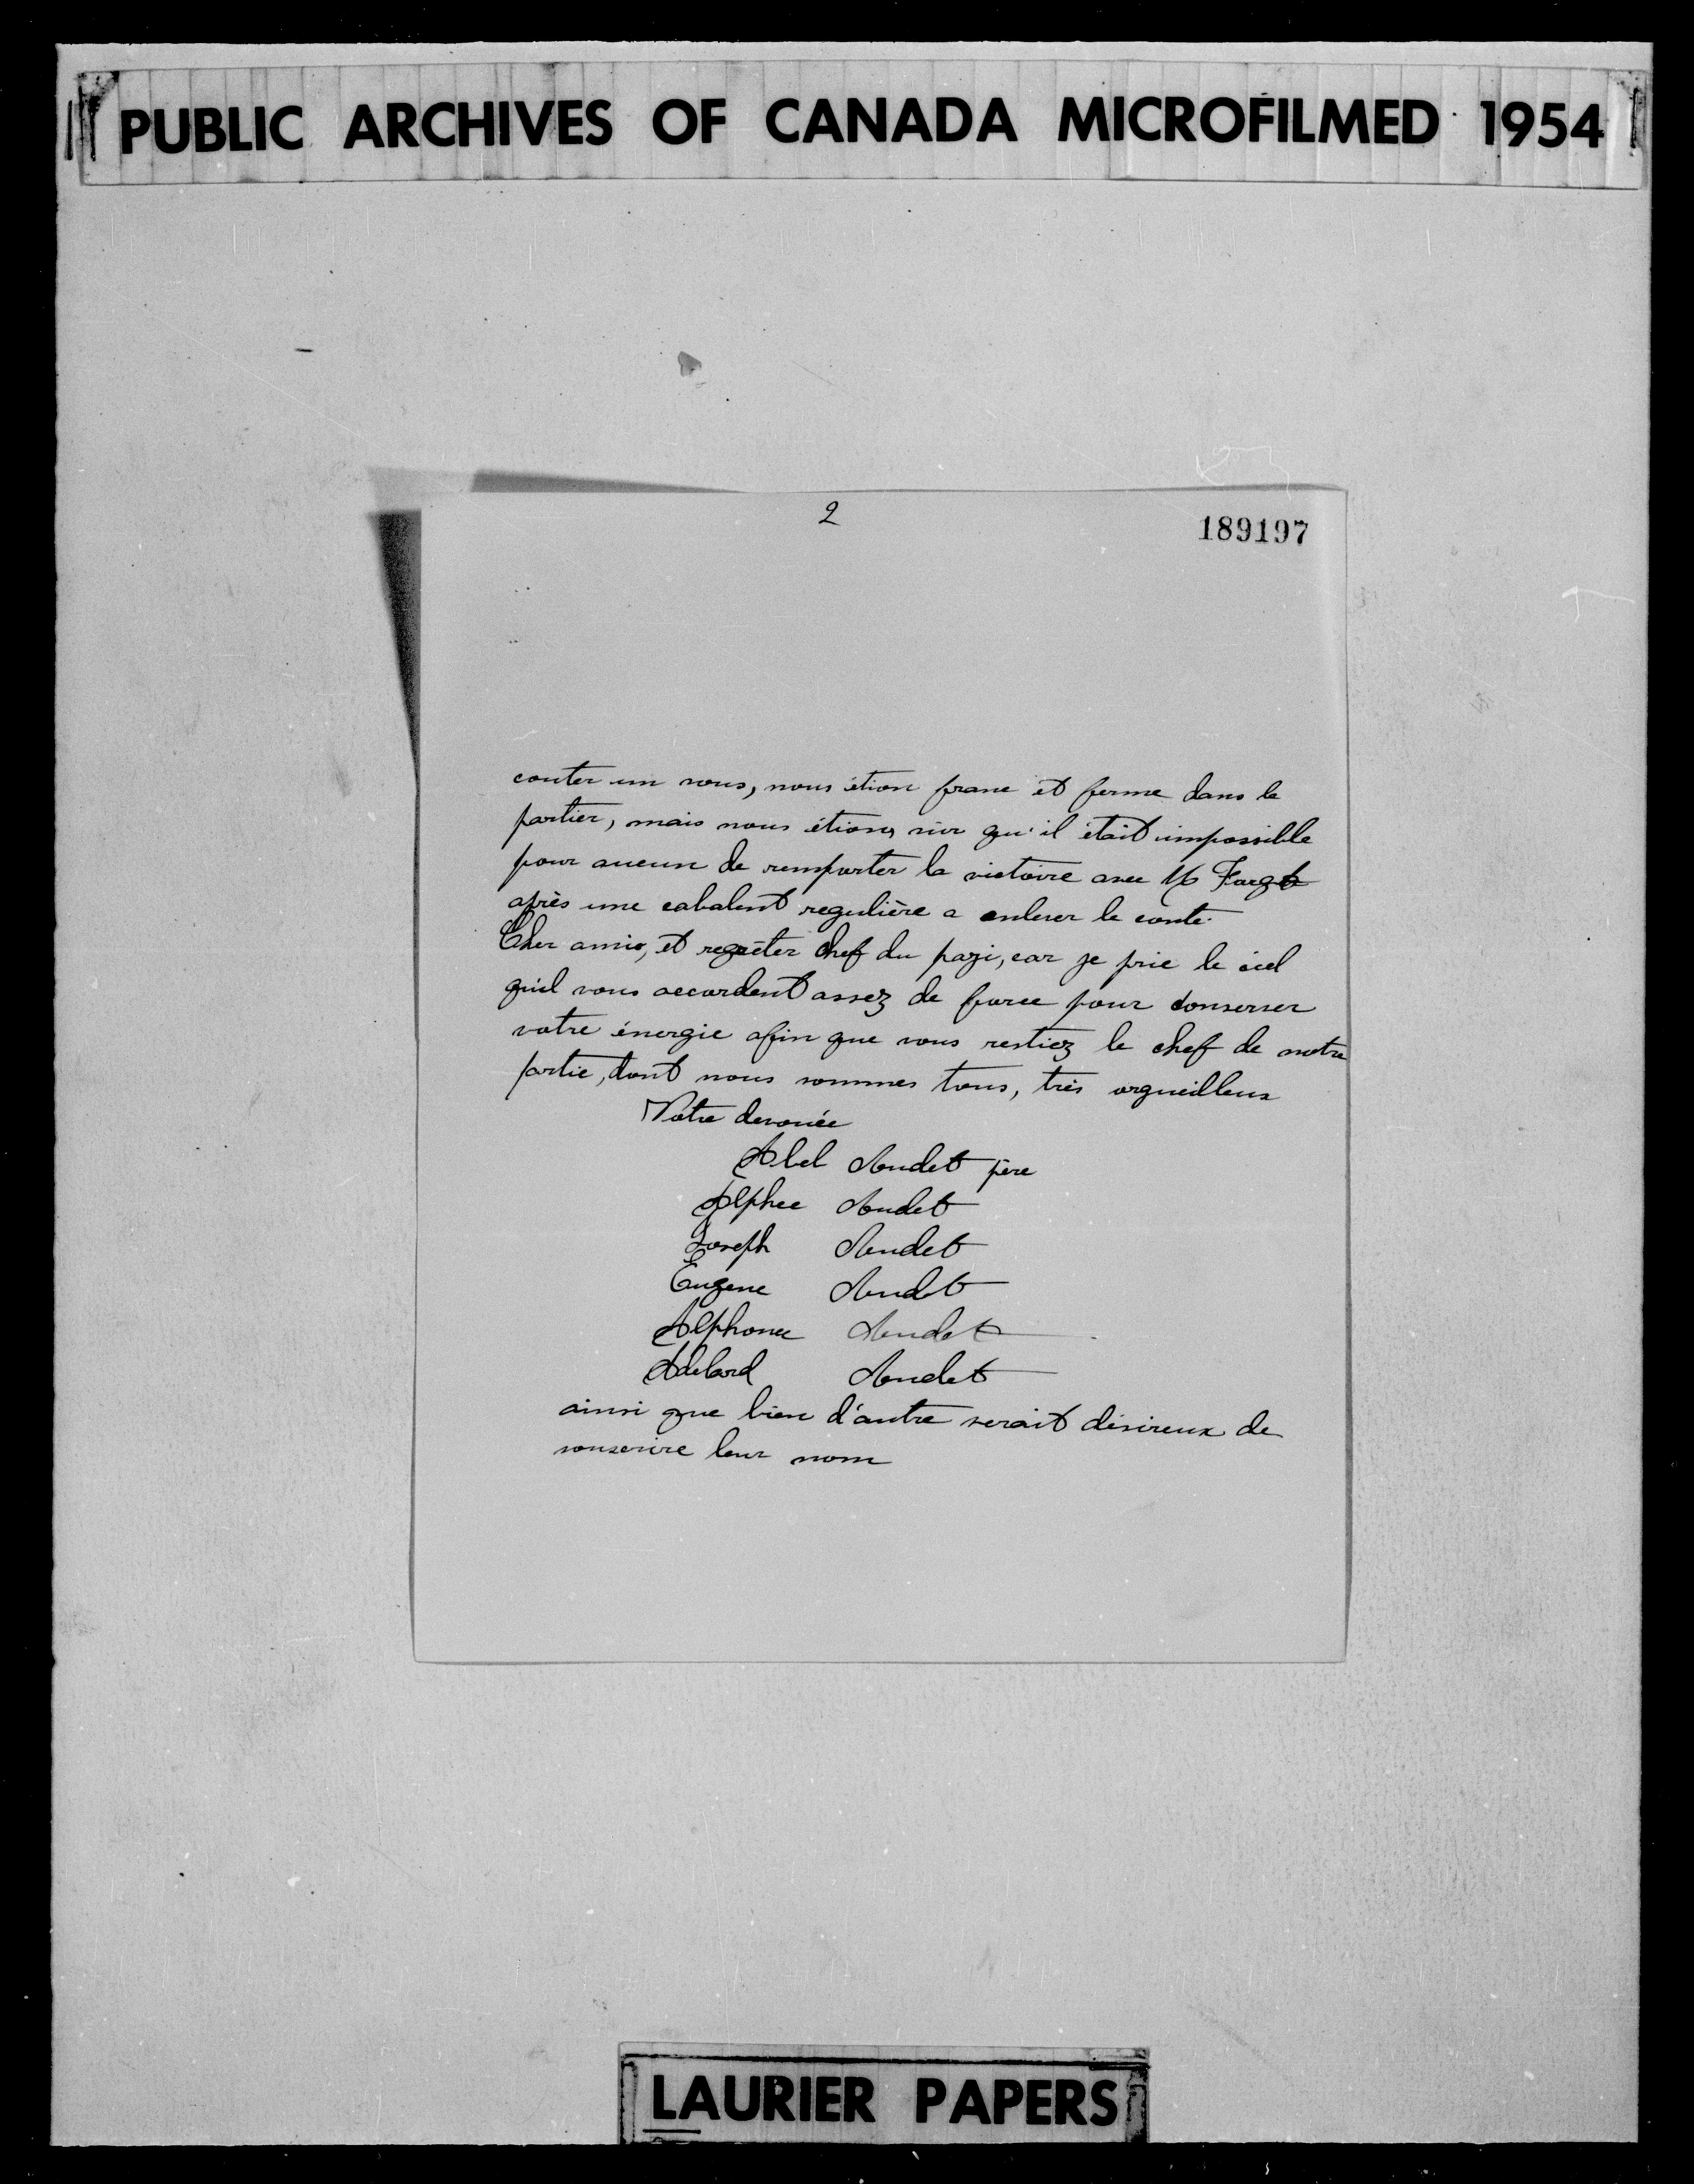 PUBLIC ARCHIVES OF CANADA MICROFILMED 1954
2
189197
conter un nous, nous étion franc et ferme dans le
partier, mais nous étions sûr qu'il était impossible
pour aucun de remporter la victoire avec M
après une cabalent regulière a enlever le conté.
Cher amis, et regrèter chef du pays, car je prie le ciel
quil vous accordent assez de force pour conserver
votre énergie afin que vous restiez le chef de notre
partie, dont nous sommes tous, très orgueilleux
Votre devouée
Abel Audet père
Alphee Audet
Joseph Audet
Eugene Audet
Alphonse Audet
Adelard Audet
ainsi que bien d'autre serait désireux de
souscrire leur nom
LAURIER PAPERS